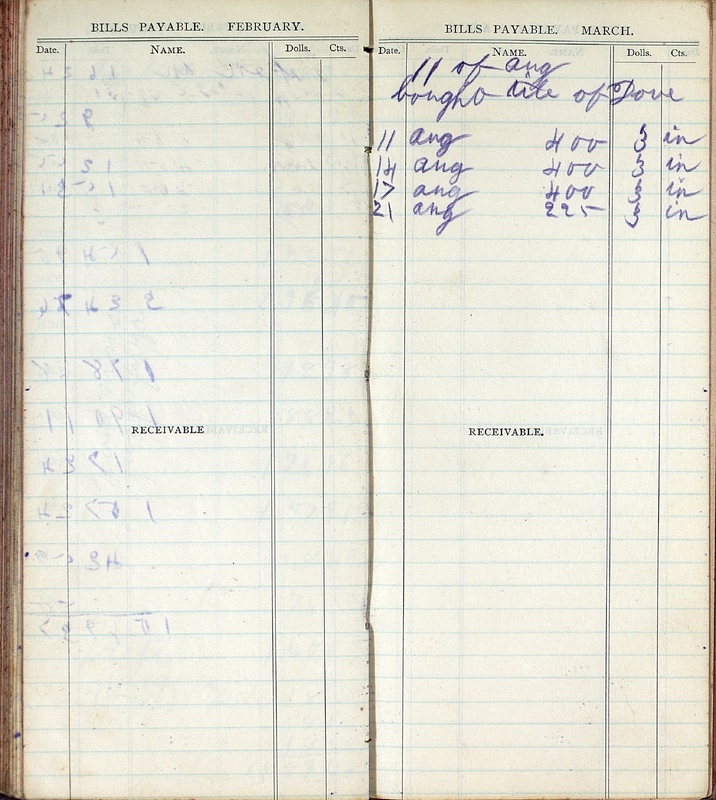 BILLS PAYABLE. FEBRUARY.
Date. NAME. Dolls. Cts.
RECEIVABLE
BILLS PAYABLE. MARCH.
Date. NAME. Dolls. Cts.
11 of aug
bought tile of Dove
11 aug 400 3 in
14 aug 400 3 in
17 aug 400 3 in
21 aug 225 3 in
RECEIVABLE.